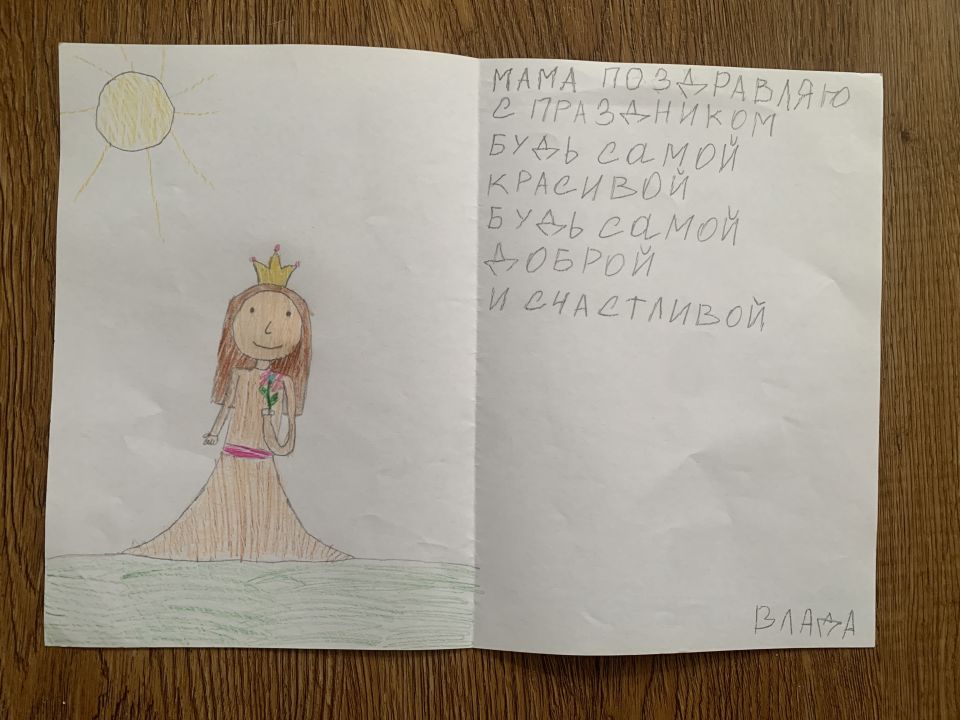 МАМА ПОЗДРАВЛЯЮ
С ПРАЗДНИКОМ
БУДЬ САМОЙ
КРАСИВОЙ
БУДЬ САМОЙ
ДОБРОЙ
И СЧАСТЛИВОЙ
ВЛАДА